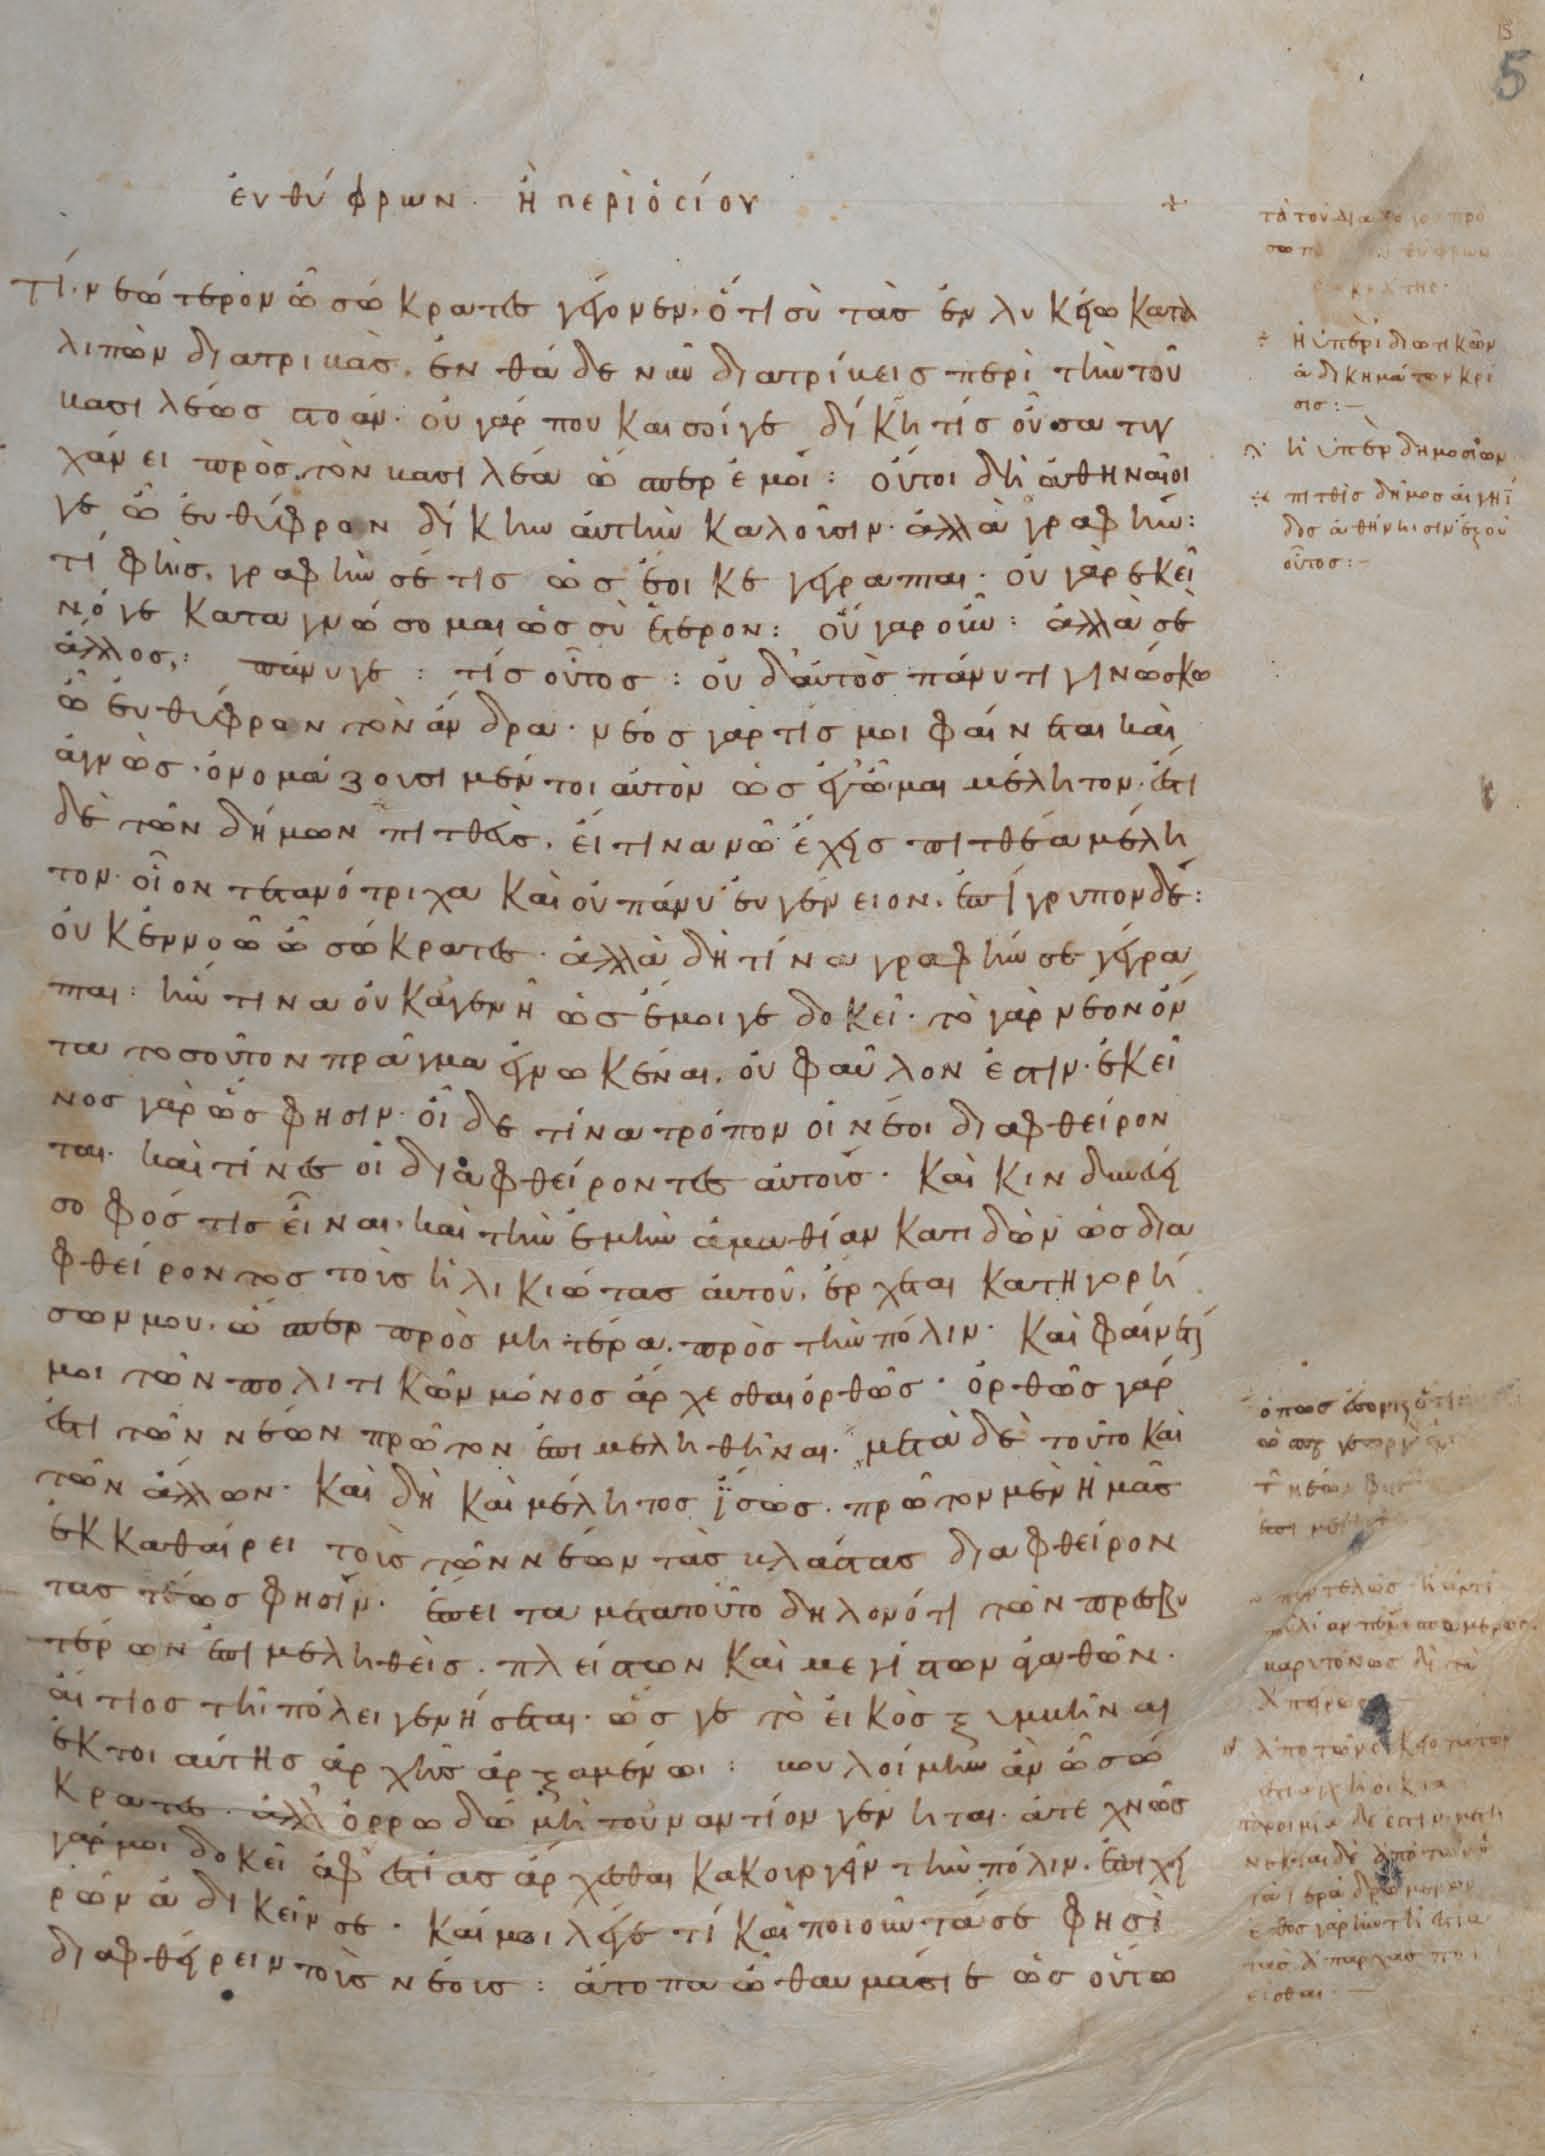 ἐυθύφρων· ἢ περὶ ὁσίου
τί νεώτερον ὦ σώκρατες γέγονεν· ὅτι σὺ τὰς ἐν λυκείω κατα
λιπὼν διατριβὰς, ἐνθάδε νῦν διατρίβεις περὶ τὴν τοῦ
βασιλέως στοάν· οὐ γάρ που καὶ σοί γε δίκη τίς οὖσα τυγ
χάνει πρὸς τὸν βασιλέα ὥσπερ ἐμοί: οὔτοι δὴ ἀθηναῖοί
γε ὦ ἐυθύφρον δίκην ἀυτὴν καλοῦσιν ἀλλὰ γραφήν:
τί φῄς. γραφὴν σέ τις ὡς ἔοικε γέγραπται· οὐ γὰρ ἐκεῖ
νό γε καταγνώσομαι ὡς σὺ ἕτερον: οὐ γὰρ οὖν: ἀλλὰ σὲ
ἄλλος: πάνυ γε: τίς οὗτος: οὐδ' ἀυτὸς πάνυ τι γινώσκω
ὦ ἐυθύφρον τὸν ἄνδρα· νέος γάρ τίς μοι φαίνεται καὶ
ἀγνώς· ὀνομάζουσι μέντοι ἀυτὸν ὡς ἐγῶμαι μέλητον· ἔστι
δὲ τῶν δήμων πιτθεύς, εἴ τινα νῶ ἔχεις πιτθέα μέλη
τον· οἷον τετανότριχα καὶ οὐ πάνυ ἐυγένειον, ἐπίγρυπον δέ:
οὐκ ἐννοῶ ὦ σώκρατες· ἀλλὰ δὴ τίνα γραφήν σε γέγρα
πται: ἥντινα οὐκ ἀγεννῆ ὡς ἔμοιγε δοκεῖ· τὸ γὰρ νέον ὄν
τα τοσοῦτον πρᾶγμα ἐγνωκέναι, οὐ φαῦλόν ἐστιν· ἐκεῖ
νος γὰρ ὥς φησιν· οἶδε τίνα τρόπον οἱ νέοι διαφθείρον
ται· καὶ τίνες οἱ διαφθείροντες ἀυτούς· καὶ κινδυνεύει
σοφός τις εἶναι, καὶ τὴν ἐμὴν ἀμαθίαν κατιδὼν ὡς δια
φθείροντος τοὺς ἡλικιώτας ἀυτοῦ, ἔρχεται κατηγορή
σων μου, ὥσπερ πρὸς μητέρα. πρὸς τὴν πόλιν· καὶ φαίνεταί
μοι τῶν πολιτικῶν μόνος ἄρχεσθαι ὀρθῶς· ὀρθῶς γάρ
ἐστι τῶν νέων πρῶτον ἐπιμεληθῆναι· μετὰ δὲ τοῦτο καὶ
τῶν ἄλλων· καὶ δὴ καὶ μέλητος ἴσως. πρῶτον μὲν ἡμᾶς
ἐκκαθαίρει τοὺς τῶν νέων τὰς βλάστας διαφθείρον
τας ὥς φησίν· ἔπειτα μετὰ τοῦτο δηλονότι τῶν πρεσβυ
τέρων ἐπιμεληθεὶς. πλείστων καὶ μεγίστων ἀγαθῶν·
αἴτιος τῆ πόλει γενήσεται· ὥς γε τὸ εἰκὸς ξυμβῆναι
ἐκ τοιαύτης ἀρχῆς ἀρξαμένωι: βουλοίμην ἂν ὦ σώ
κρατες· ἀλλ' ὀρρωδῶ μὴ τουναντίον γένηται· ἀτεχνῶς
γάρ μοι δοκεῖ ἀφ' ἑστίας ἄρχεσθαι κακουργεῖν τὴν πόλιν. ἐπιχει
ρῶν ἀδικεῖν σε· καί μοι λέγε τί καὶ ποιοῦντά σέ φησὶ
διαφθείρειν τοὺς νέους: ἄτοπα ὦ θαυμάσιε ὡς οὕτω
ἡ ὑπὲρ ἰδιωτικῶν
ἀδικημάτων κρί
σις:
ἡ ὑπὲρ δημοσίων
πιτθὶς δῆμος αἰγηΐ
δος ἀθήνησιν
οὗτος:
5